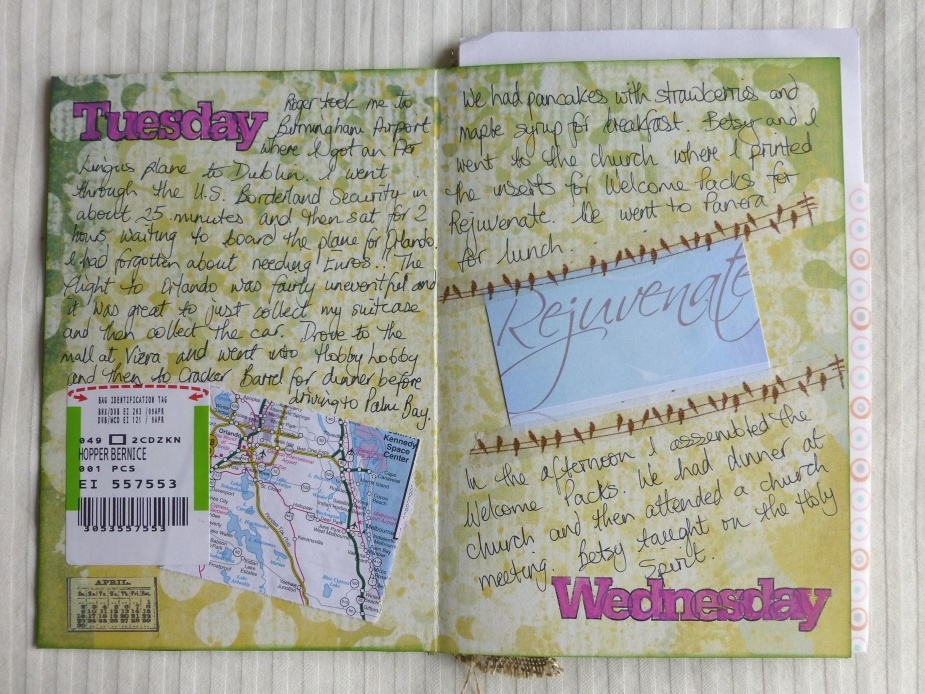 Tuesday
Roger took me to
Birmingham Airport
where I got an Aer
Lingus plane to Dublin. I went
through the U.S. Borderland Security in
about 25 minutes and then sat for 2
hours waiting to board the plane for Orlando.
I had forgotten about needing Euros!! The
flight to Orlando was fairly uneventful and
it was great to just collect my suitcase
and then collect the car. Drove to the
mall at Viera and went into Hobby Lobby
and then to Cracker Barrel for dinner before
driving to Palm Bay.
BAG IDENTIFICATION TAG
BHX/DUB EI 263 /09APR
DUB/MCO EI 121 / 09APR
049 2CDZKN
HOPPER BERNICE
001 PCS
EI 557553
3053557553
Kennedy
Space
Center
Orlando
Melbourne
APRIL
We had pancakes with strawberries and
maple syrup for breakfast. Betsy and I
went to the church where I printed
the inserts for Welcome Packs for
Rejuvenate. We went to Panera
for lunch.
Rejuvenate
In the afternoon I assembled the
Welcome Packs. We had dinner at
church and then attended a church
meeting. Betsy taught on the Holy
Spirit.
Wednesday